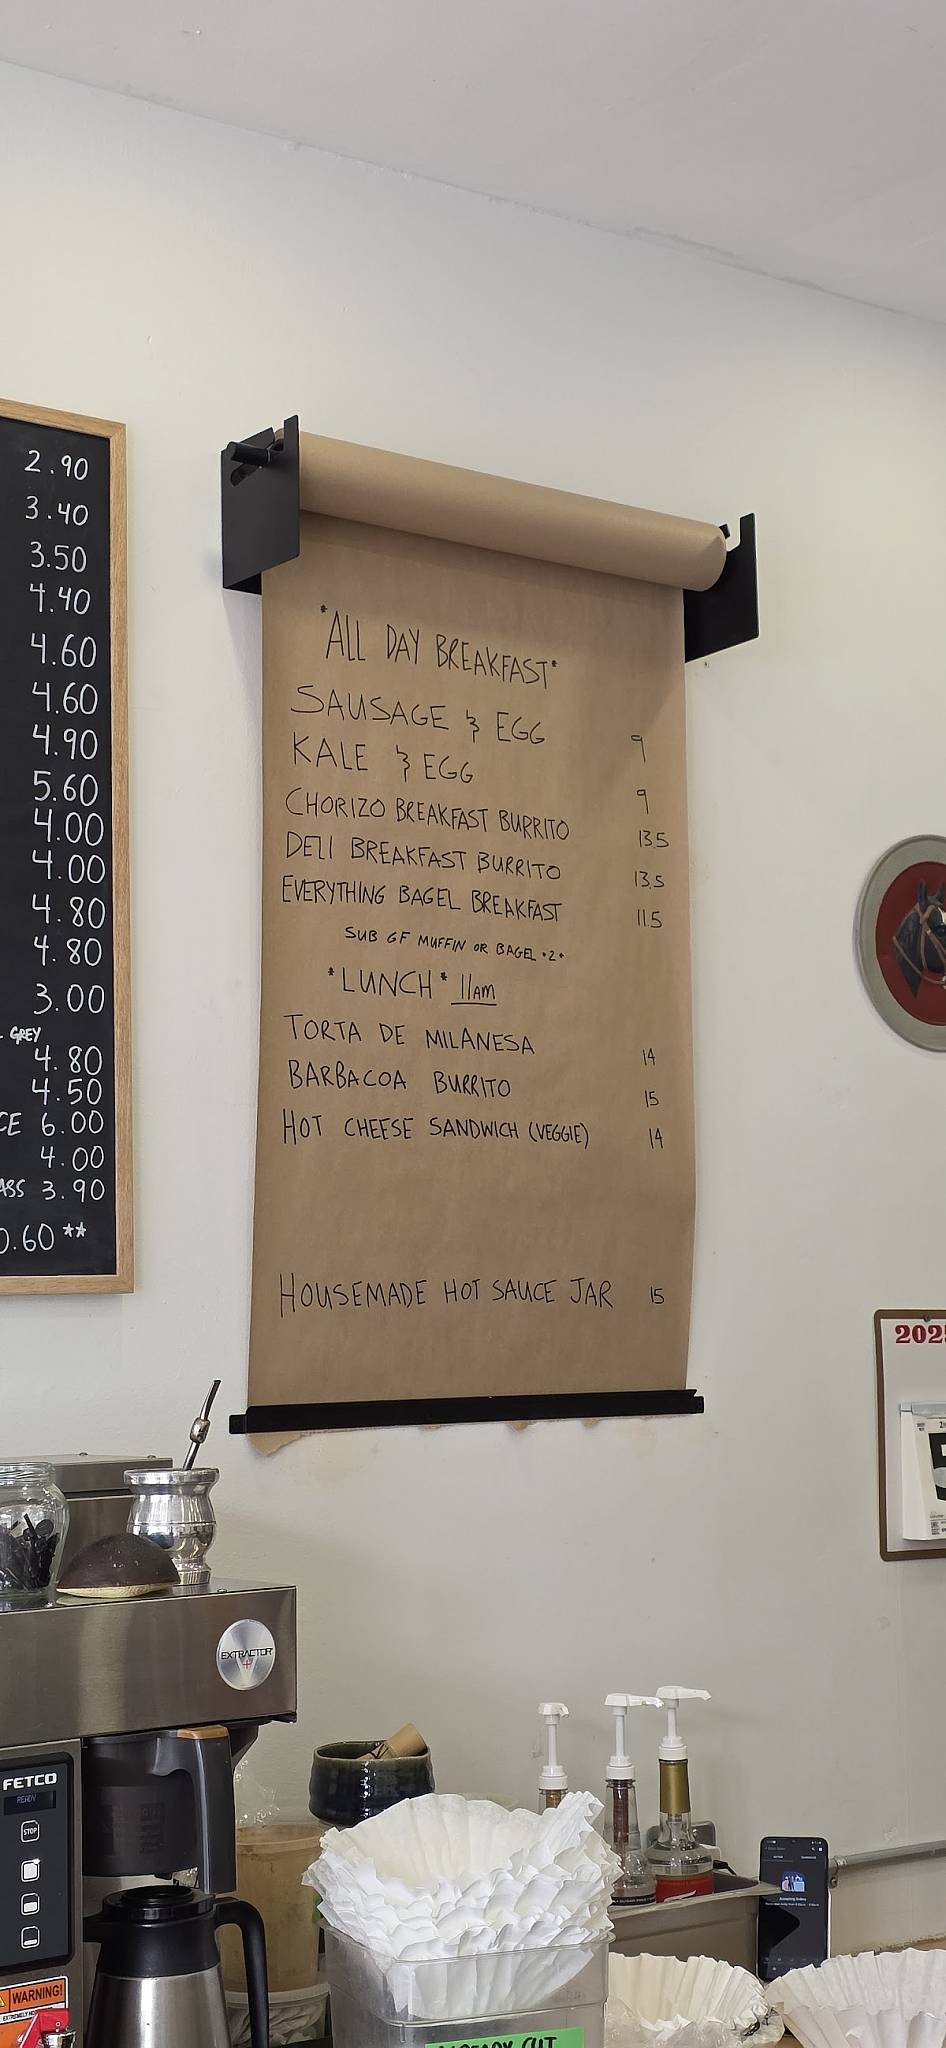 2.90
3.40
3.50
4.40
4.60
4.60
4.90
5.60
4.00
4.00
4.80
4.80
3.00
GREY
4.80
4.50
CE 6.00
4.00
ASS 3.90
0.60**
*ALL DAY BREAKFAST*
SAUSAGE & EGG 9
KALE & EGG 9
CHORIZO BREAKFAST BURRITO 13.5
DELI BREAKFAST BURRITO 13.5
EVERYTHING BAGEL BREAKFAST 11.5
SUB GF MUFFIN OR BAGEL +2+
*LUNCH* 11AM
TORTA DE MILANESA 14
BARBACOA BURRITO 15
HOT CHEESE SANDWICH (VEGGIE) 14
HOUSEMADE HOT SAUCE JAR 15
202
EXTRACTOR
FETCO
READY
STOP
WARNING!
ALREADY CUT